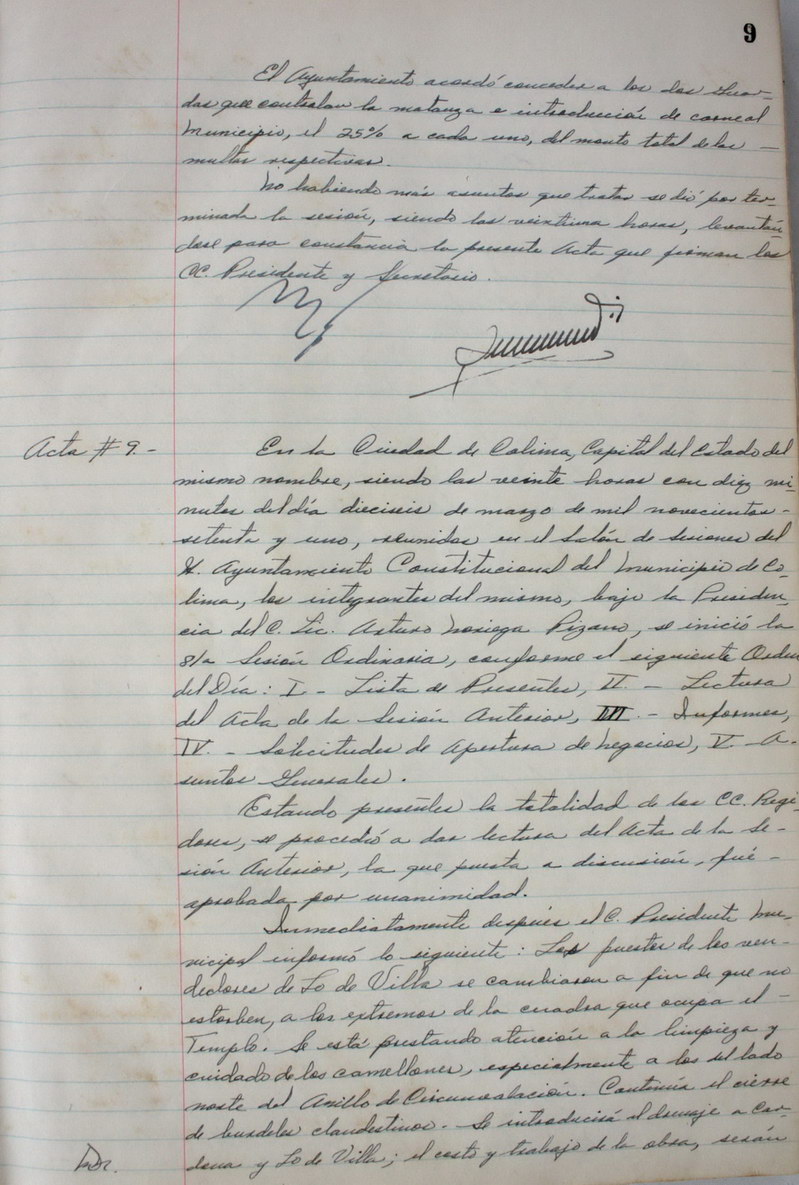 9
El Ayuntamiento acordó conceder a los dos Guar-
das que controlan la matanza e introducción de carne al
Municipio, el 25% a cada uno, del monto total de las —
multas respectivas.
No habiendo más asuntos que tratar se dió por ter-
minada la sesión, siendo las veintiuna horas, levantán-
dose para constancia la presente Acta que firman los
CC. Presidente y Secretario.
Acta # 9.-
En la Ciudad de Colima, Capital del Estado del
mismo nombre, siendo las veinte horas con diez mi-
nutos del día dieciseis de marzo de mil novecientos-
setenta y uno, reunidos en el Salón de sesiones del
H. Ayuntamiento Constitucional del Municipio de Co-
lima, los integrantes del mismo, bajo la Presiden-
cia del C. Lic. Arturo Noriega Pizano, se inició la
8/a Sesión Ordinaria, conforme el siguiente Orden
del Día: I.- Lista de Presentes, II.- Lectura
del Acta de la Sesión Anterior, III.- Informes,
IV.- Solicitudes de Apertura de Negocios, V. A-
suntos Generales.
Estando presentes la totalidad de los CC. Regi-
dores, se procedió a dar lectura del Acta de la Se-
sión Anterior, la que puesta a discusión, fué-
aprobada por unanimidad.
Inmediatamente después el C. Presidente Mu-
nicipal informó lo siguiente: Los puestos de los ven-
dedores de Lo de Villa se cambiaron a fin de que no
estorben, a los extremos de la cuadra que ocupa el-
Templo. Se está prestando atención a la limpieza y
cuidado de los camellones, especialmente a los del lado
norte del Anillo de Circunvalación. Continúa el cierre
de burdeles clandestinos. Se introducirá el drenaje a Car-
dona y Lo de Villa; el costo y trabajo de la obra, serán